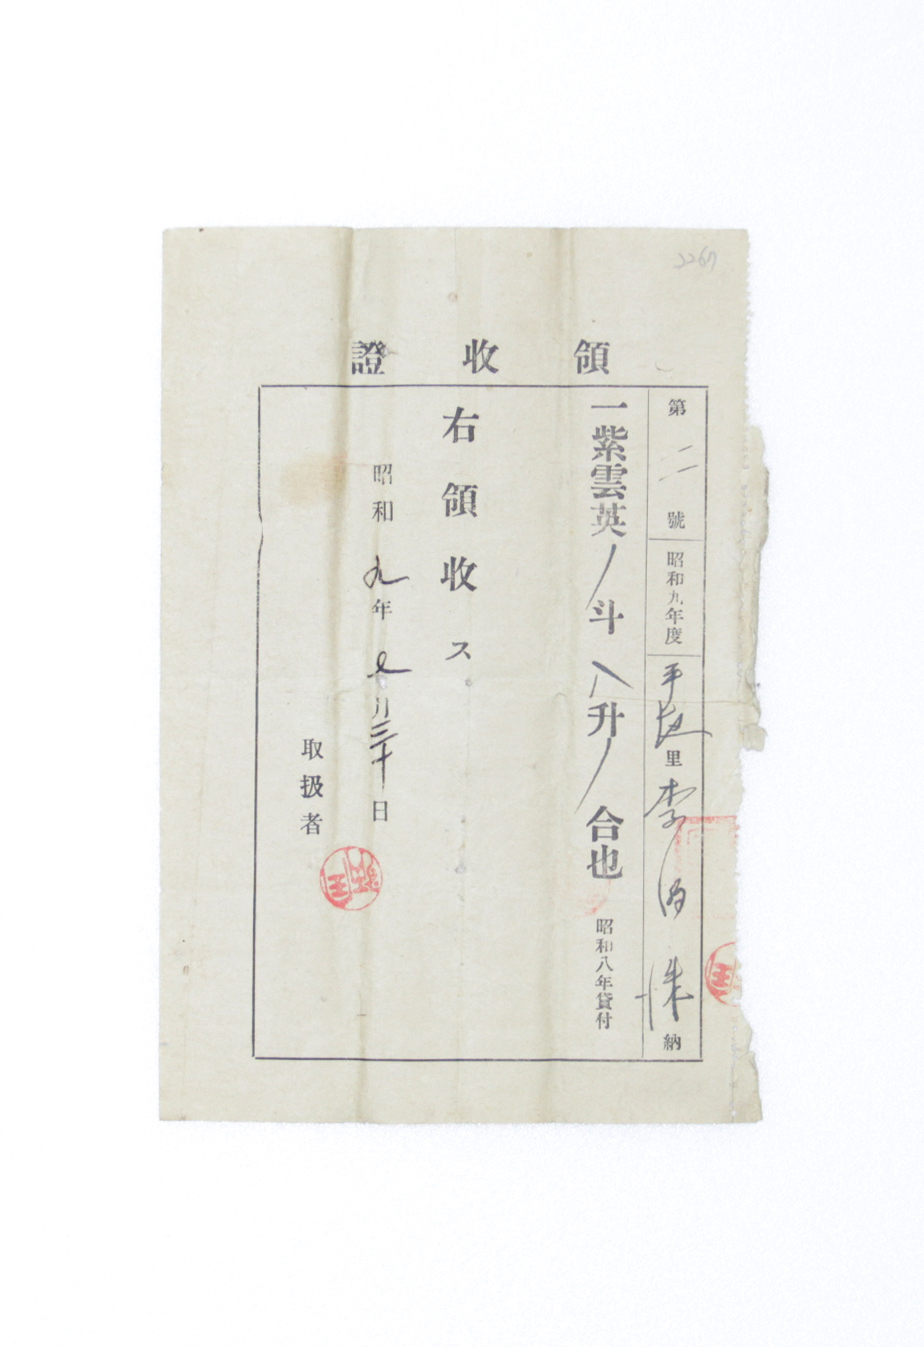 2267
領收證
第二號 昭和九年度 平 里 李 洙 納
一紫雲英 斗八升 合也 昭和八年貸付
右領收ス
昭和九年七月三十日
取扱者